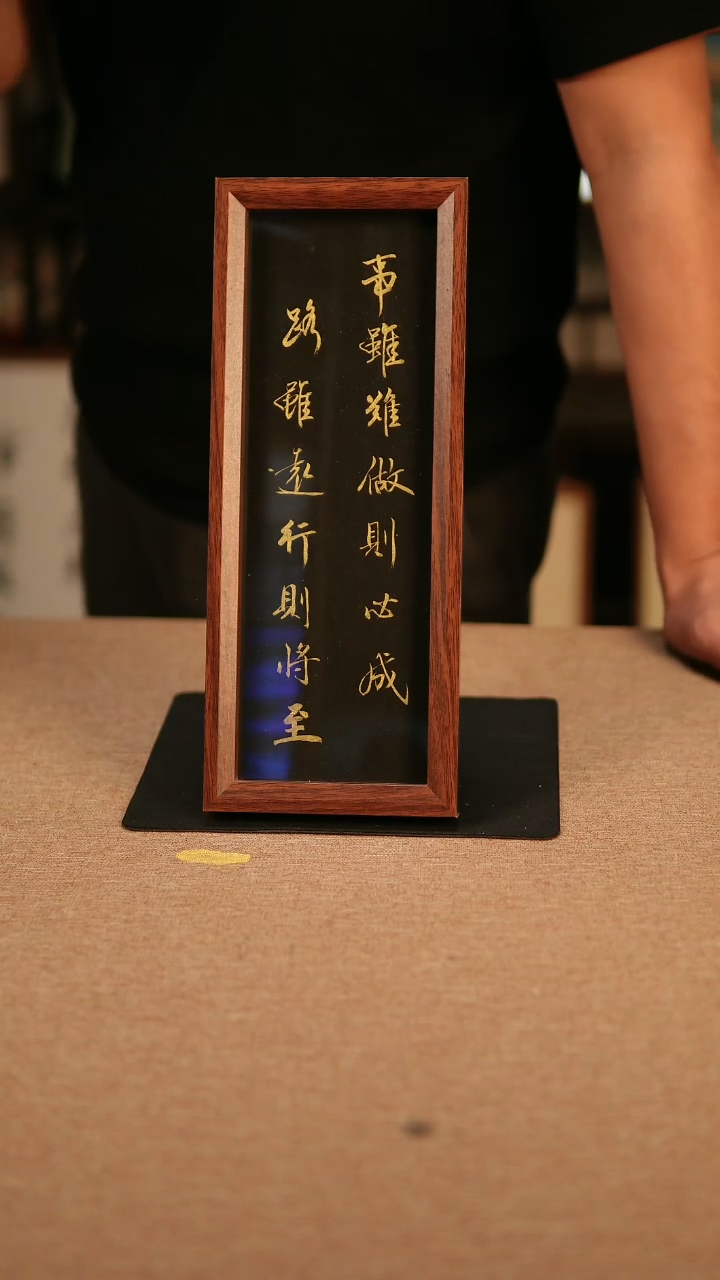 事雖難做則必成
路雖遠行則將至